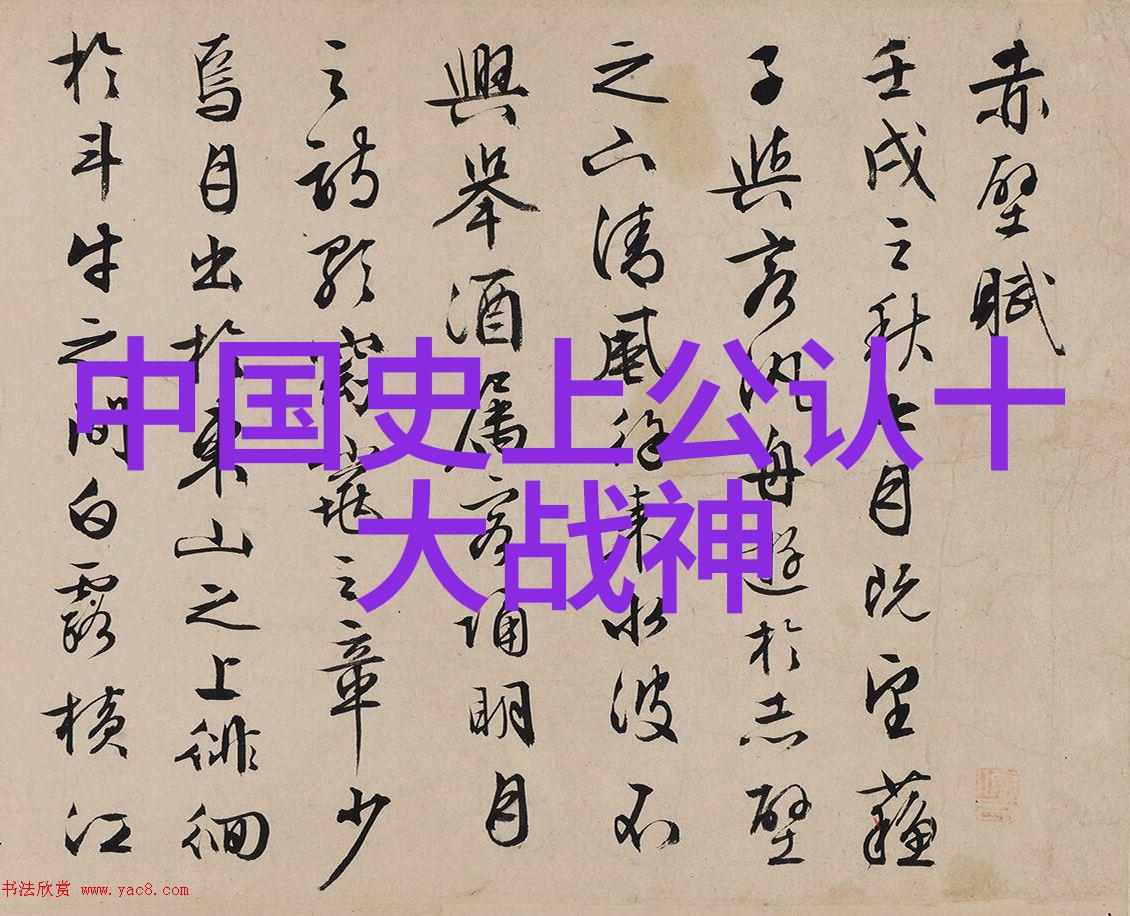 赤壁賦
壬戌之秋七月既望蘓
子與客泛舟遊於赤壁
之下清風徐來水波不
興舉酒屬客誦明月
之詩歌窈窕之章少
焉月出於東山之上徘徊
於斗牛之間白露橫江
中国史上公认十
大战神
书法欣赏 www.yac8.com